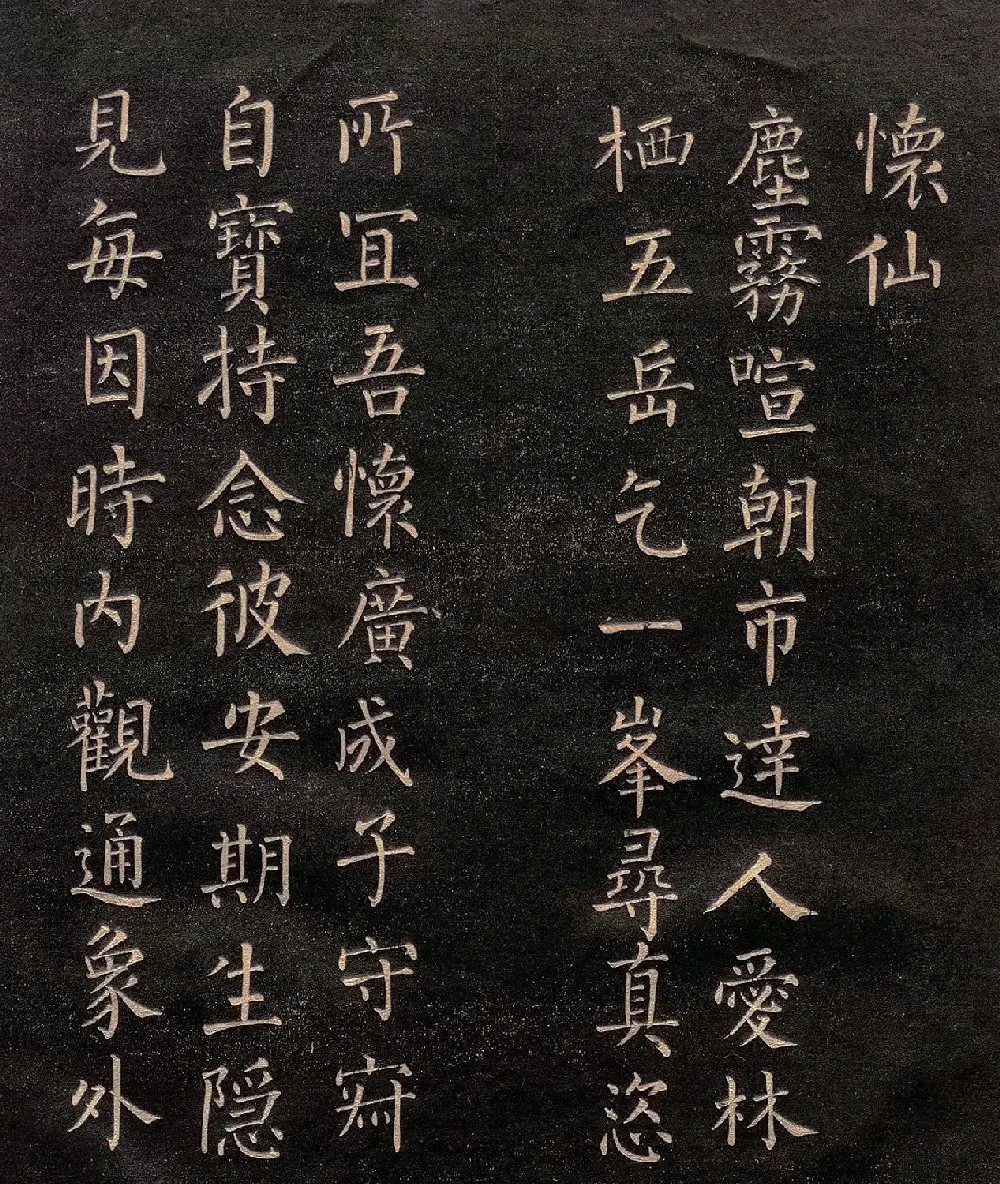 懷仙
塵霧喧朝市達人愛林
栖五岳乞一峯尋真恣
所冝吾懷廣成子守寂
自寶持念彼安期生隱
見每因時内觀通象外